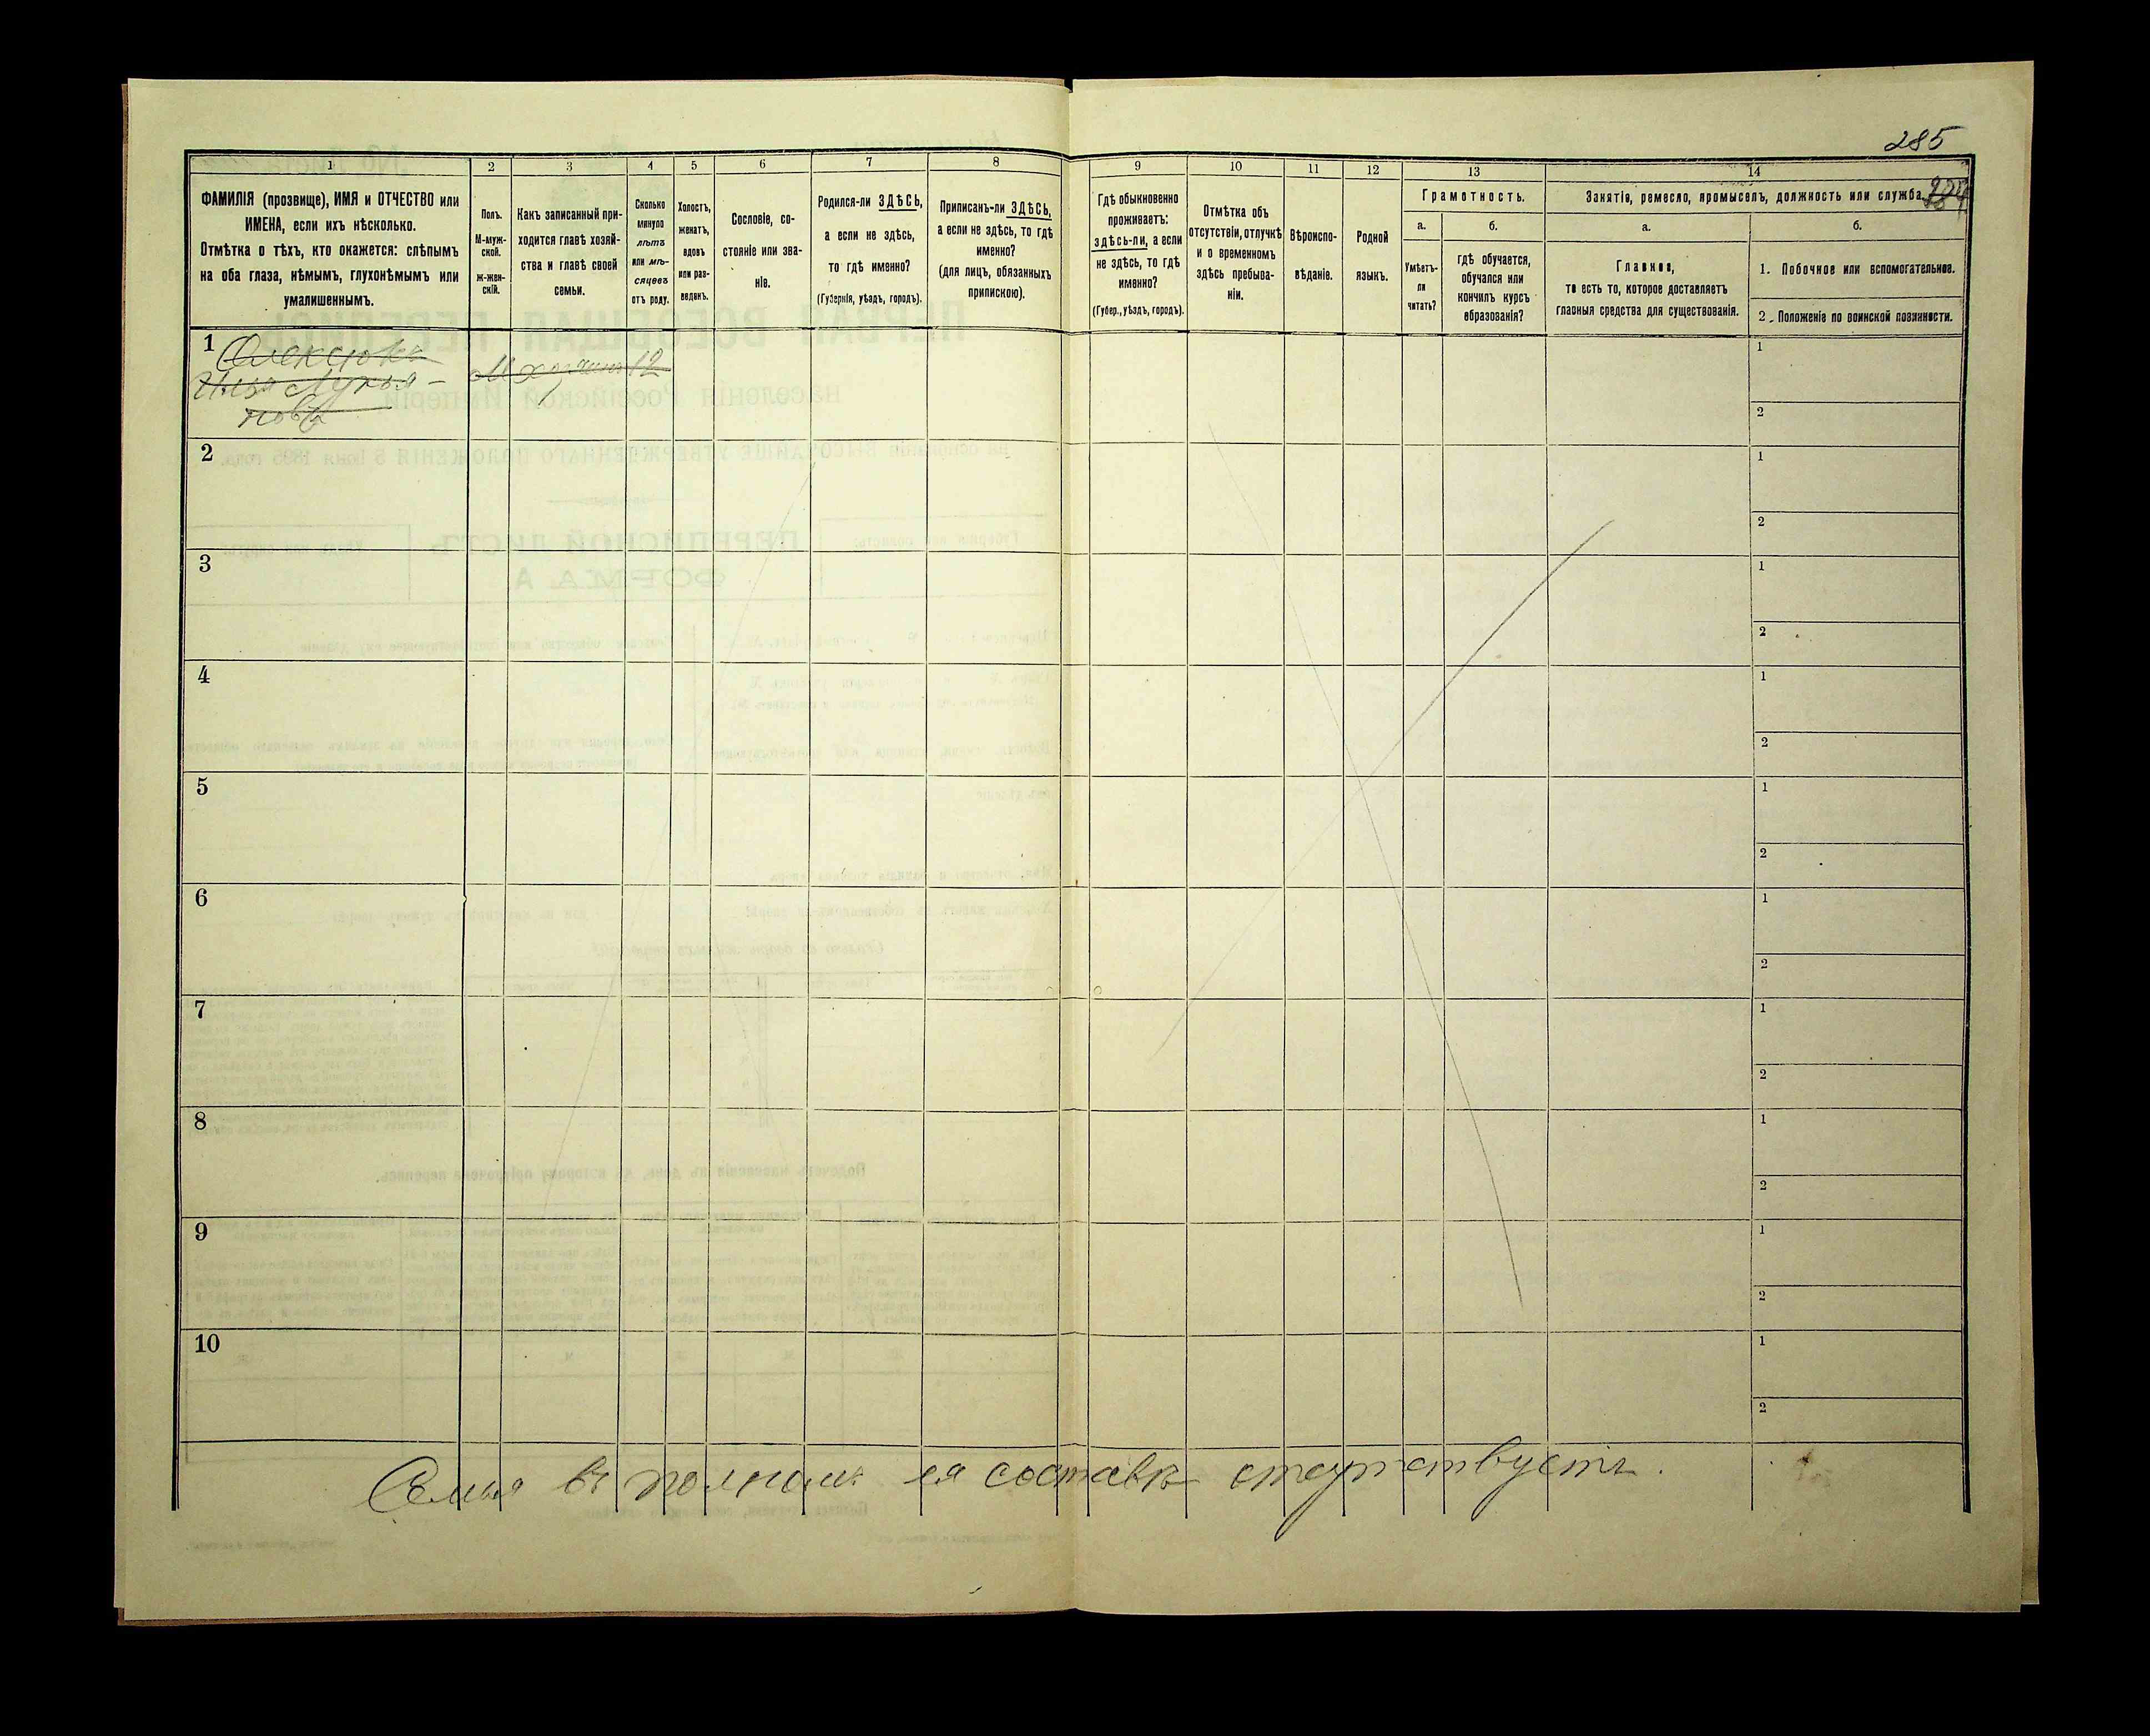 285
1
2
3
4
5
6
7
8
9
10
11
12
13
14
ФАМИЛІЯ (прозвище), ИМЯ и ОТЧЕСТВО или
ИМЕНА, если ихъ нѣсколько.
Отмѣтка о тѣхъ, кто окажется: слѣпымъ
на оба глаза, нѣмымъ, глухонѣмымъ или
умалишеннымъ.
Полъ.
М-муж-
ской.
ж-жен-
скій.
Какъ записанный при-
ходится главѣ хозяй-
ства и главѣ своей
семьи.
Сколько
минуло
лѣтъ
или мѣ-
сяцевъ
отъ роду.
Холостъ,
женатъ,
вдовъ
или раз-
веденъ.
Сословіе, со-
стояніе или зва-
ніе.
Родился-ли ЗДѢСЬ,
а если не здѣсь,
то гдѣ именно?
(Губернія, уѣздъ, городъ).
Приписанъ-ли ЗДѢСЬ,
а если не здѣсь, то гдѣ
именно?
(для лицъ, обязанныхъ
припискою).
Гдѣ обыкновенно
проживаетъ:
здѣсь-ли, а если
не здѣсь, то гдѣ
именно?
(Губер., уѣздъ, городъ).
Отмѣтка объ
отсутствіи, отлучкѣ
и о временномъ
здѣсь пребыва-
ніи.
Вѣроиспо-
вѣданіе.
Родной
языкъ.
Грамотность.
а.
Умѣетъ-
ли
читать?
б.
гдѣ обучается,
обучался или
кончилъ курсъ
образованія?
Занятіе, ремесло, промыселъ, должность или служба.
а.
Главное,
то есть то, которое доставляетъ
главныя средства для существованія.
б.
1. Побочное или вспомогательное.
2. Положеніе по воинской повинности.
1
Илья Лукья-
новъ
М
12
1
2
2
1
2
3
1
2
4
1
2
5
1
2
6
1
2
7
1
2
8
1
2
9
1
2
10
1
2
Семья въ полномъ ея составѣ отсутствуетъ.